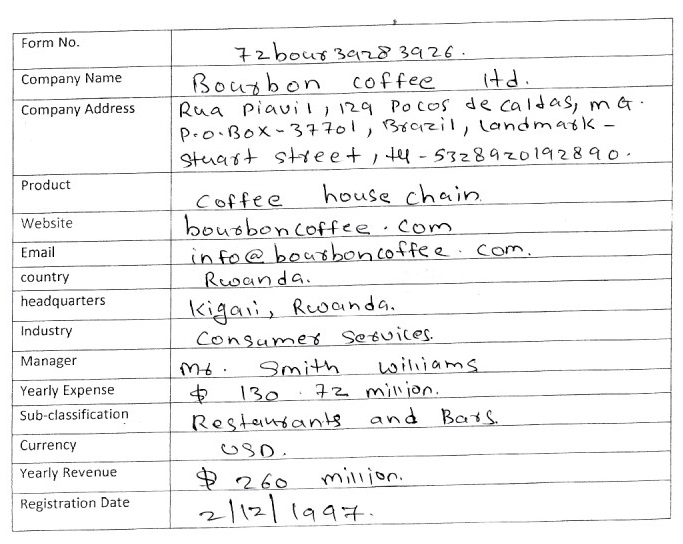 Form No. 72bour39283926.
Company Name Bourbon coffee ltd.
Company Address Rua Piauil, 129 Pocos de caldas, MG.
P.O.BOX-37701, Brazil, Landmark-
Stuart street, ty-5328920192890.
Product Coffee house chain.
Website bourboncoffee.com
Email info@bourboncoffee.com.
country Rwanda.
headquarters Kigali, Rwanda.
Industry Consumer Services.
Manager Mr. Smith williams
Yearly Expense $ 130.72 million.
Sub-classification Restaurants and Bars.
Currency USD.
Yearly Revenue $ 260 million.
Registration Date 2/12/1997.